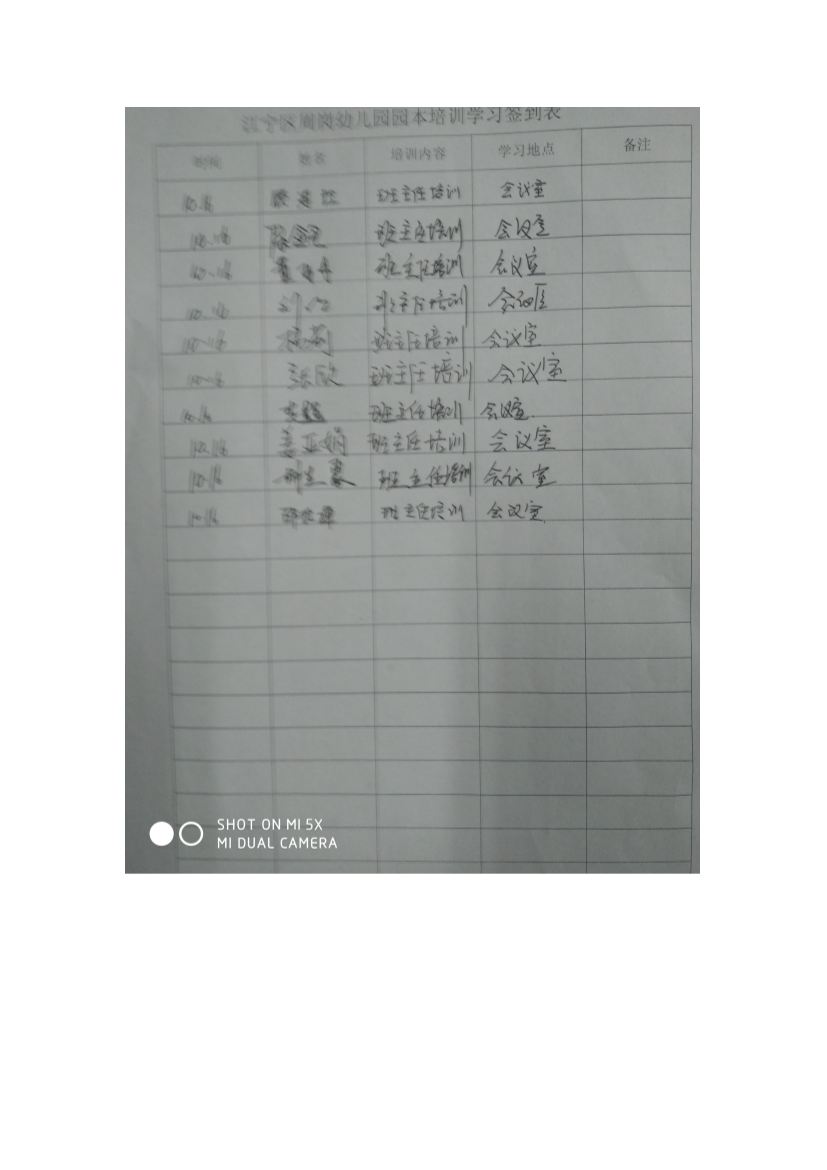 江宁区周岗幼儿园园本培训学习签到表
时间 姓名 培训内容 学习地点 备注
班主任培训 会议室
10.16 班主任培训 会议室
10.16 班主任培训 会议室
10.16 班主任培训
10.16 杨莉 班主任培训 会议室
10.16 张欣 班主任培训 会议室
10.16 班主任培训 会议室
10.16 姜亚娟 班主任培训 会议室
10.16 班主任培训 会议室
10.16 班主任培训 会议室
SHOT ON MI 5X
MI DUAL CAMERA